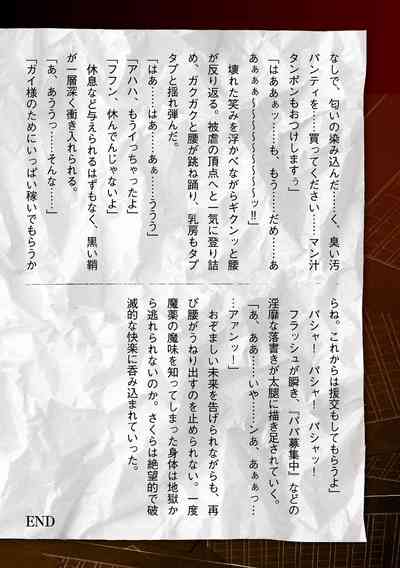 なしで、匂いの染み込んだ……く、臭い汚
パンティを……買ってください……マン汁
タンポンもおつけしますぅ」
「はああぁッ……も、もう……だめ……あ
あぁぁぁ～～～～～～～～～～～ッ!!」
壊れた笑みを浮かべながらギクンッと腰
が反り返る。被虐の頂点へと一気に登り詰
め、ガクガクと腰が跳ね踊り、乳房もタプ
タプと揺れ弾んだ。
「はあ……はあ……あぁ……ううう」
「アハハ、もうイっちゃったよ」
「フフン、休んでんじゃないよ」
休息など与えられるはずもなく、黒い鞘
が一層深く衝き入れられる。
「あ、あううっ……そんな……」
「ガイ様のためにいっぱい稼いでもらうか
らね。これからは援交もしてもらうよ」
パシャ！　パシャ！　パシャッ！
フラッシュが瞬き、『パパ募集中』などの
淫靡な落書きが太腿に描き足されていく。
「あ、ああ……いや……ンあ、あぁぁっ…
…アァンッ！」
おぞましい未来を告げられながらも、再
び腰がうねり出すのを止められない。一度
魔薬の魔味を知ってしまった身体は地獄か
ら逃れられないのか。さくらは絶望的で破
滅的な快楽に呑み込まれていった。
END